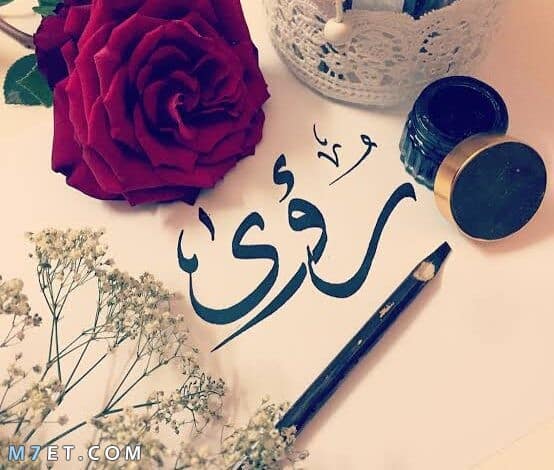 رُؤى
M7ET.COM